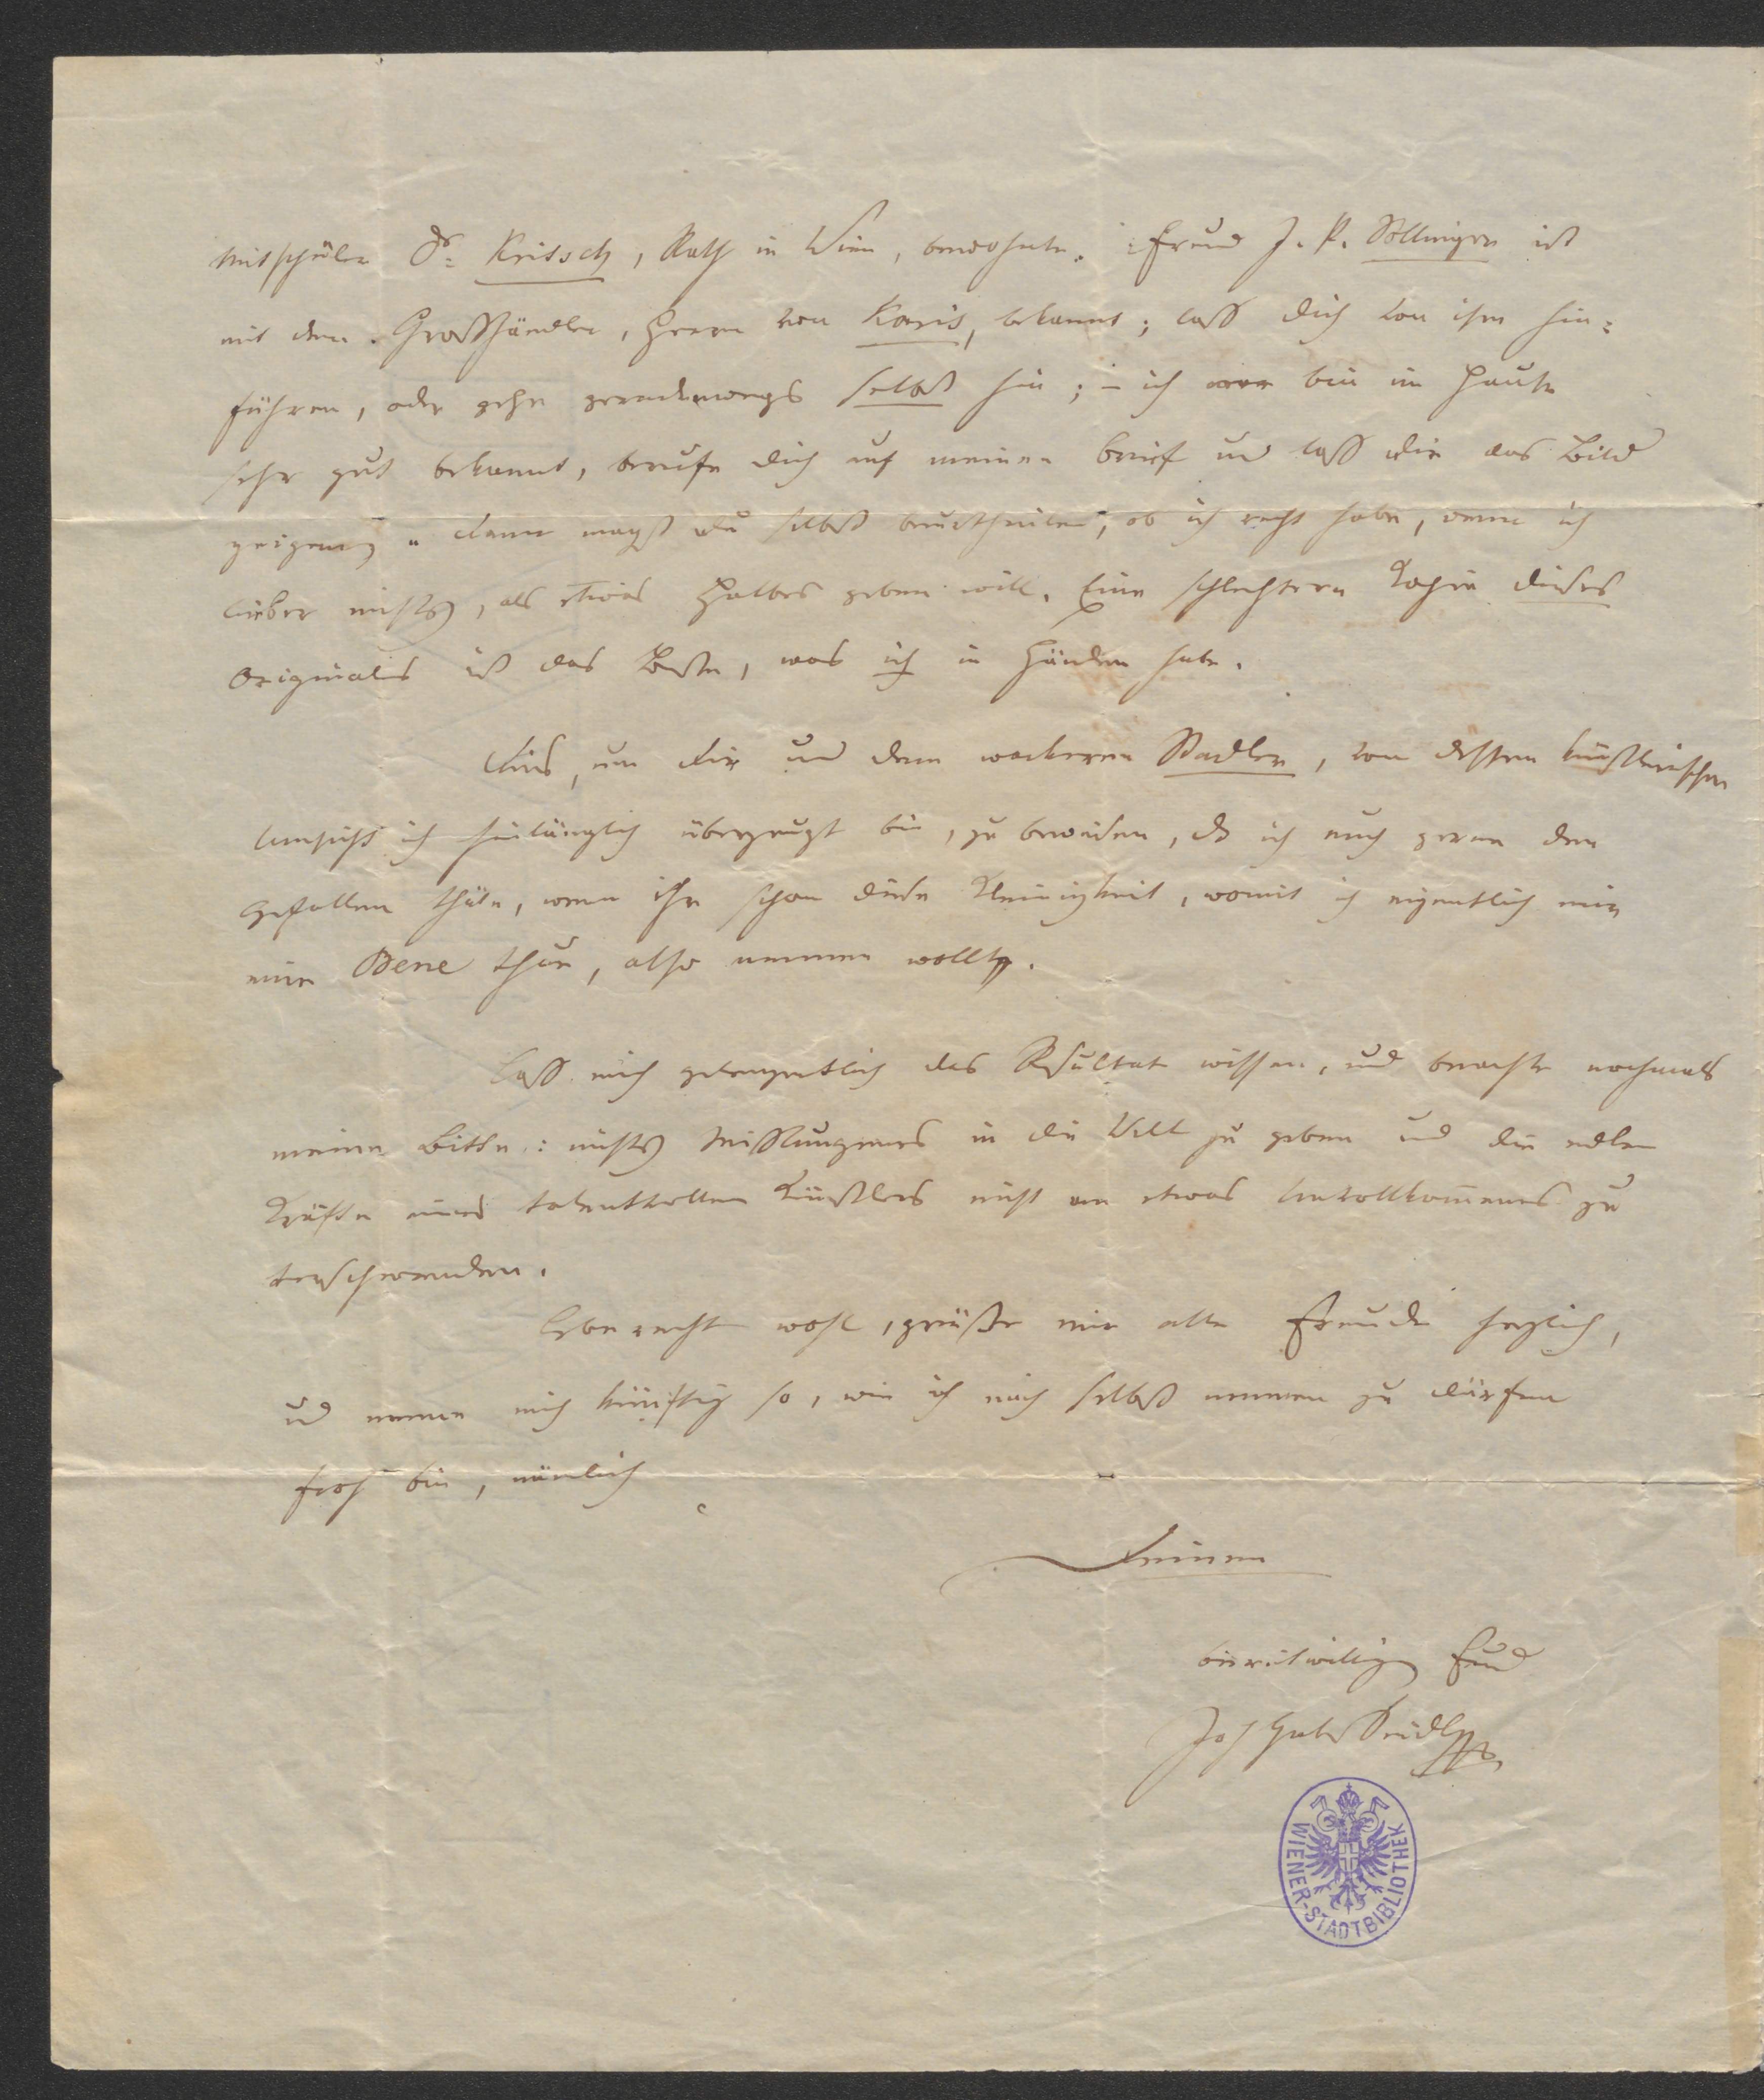 Mitschüler Dr: Kritsch, Rath in Wien, bewohnte. Freund J. P. Sollinger ist
mit dem Großhändler, Herrn von Koris, bekannt; laß dich von ihm hin=
führen, oder gehe geradewegs selbst hin; – ich bin im Hause
sehr gut bekannt, berufe dich auf meinen Brief und laß dir das Bild
zeigen, dann magst du selbst beurtheilen, ob ich recht habe, wenn ich
lieber nichts, als etwas Halbes geben will. Eine schlechtere Kopie dieses
Originales ist das Beste, was ich in Händen habe.
Dies, um dir und dem wackeren Stadler, von dessen künstlerischer
Umsicht ich hinlänglich überzeugt bin, zu beweisen, dß ich euch gerne den
Gefallen thäte, wenn ihr schon diese Kleinigkeit, womit ich eigentlich mir
ein Bene thue, also nennen wollt.
Laß mich gelegentlich das Resultat wissen, und beachte nochmals
meine Bitte: nichts Mißlungenes in die Welt zu geben und die edlen
Kräfte eines talentvollen Künstlers nicht an etwas Unvollkommenes zu
verschwenden.
Lebe recht wohl, grüße mir alle Freunde herzlich,
und nenne mich künftig so, wie ich mich selbst nennen zu dürfen
froh bin, nämlich
Deinen
bereitwilligen Freund
Joh Gab Seidl
WIENER-STADTBIBLIOTHEK